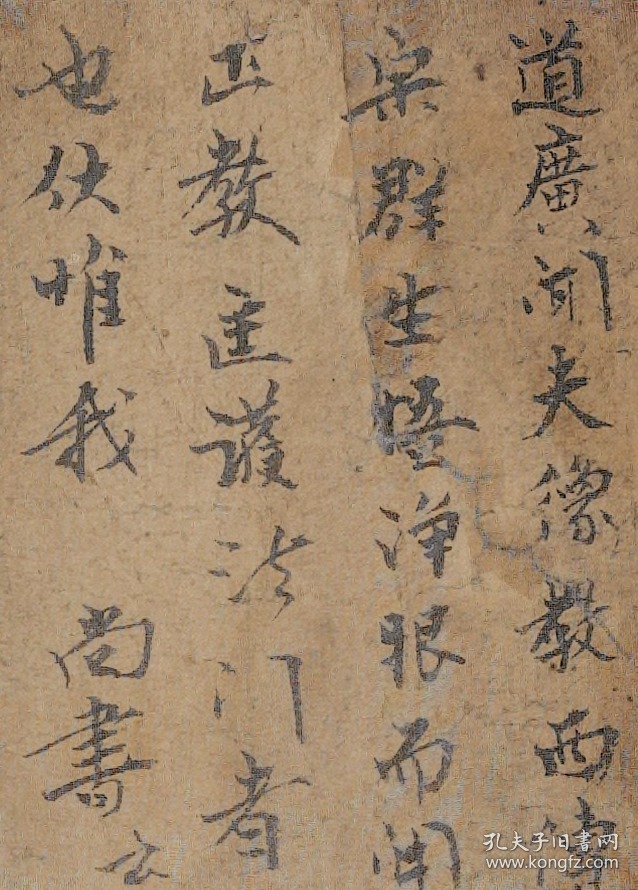 道廣聞夫像教西傳
群生悟淨眼而開
正教匡護法門者
也伏惟我 尚書公
孔夫子旧书网
www.kongfz.com